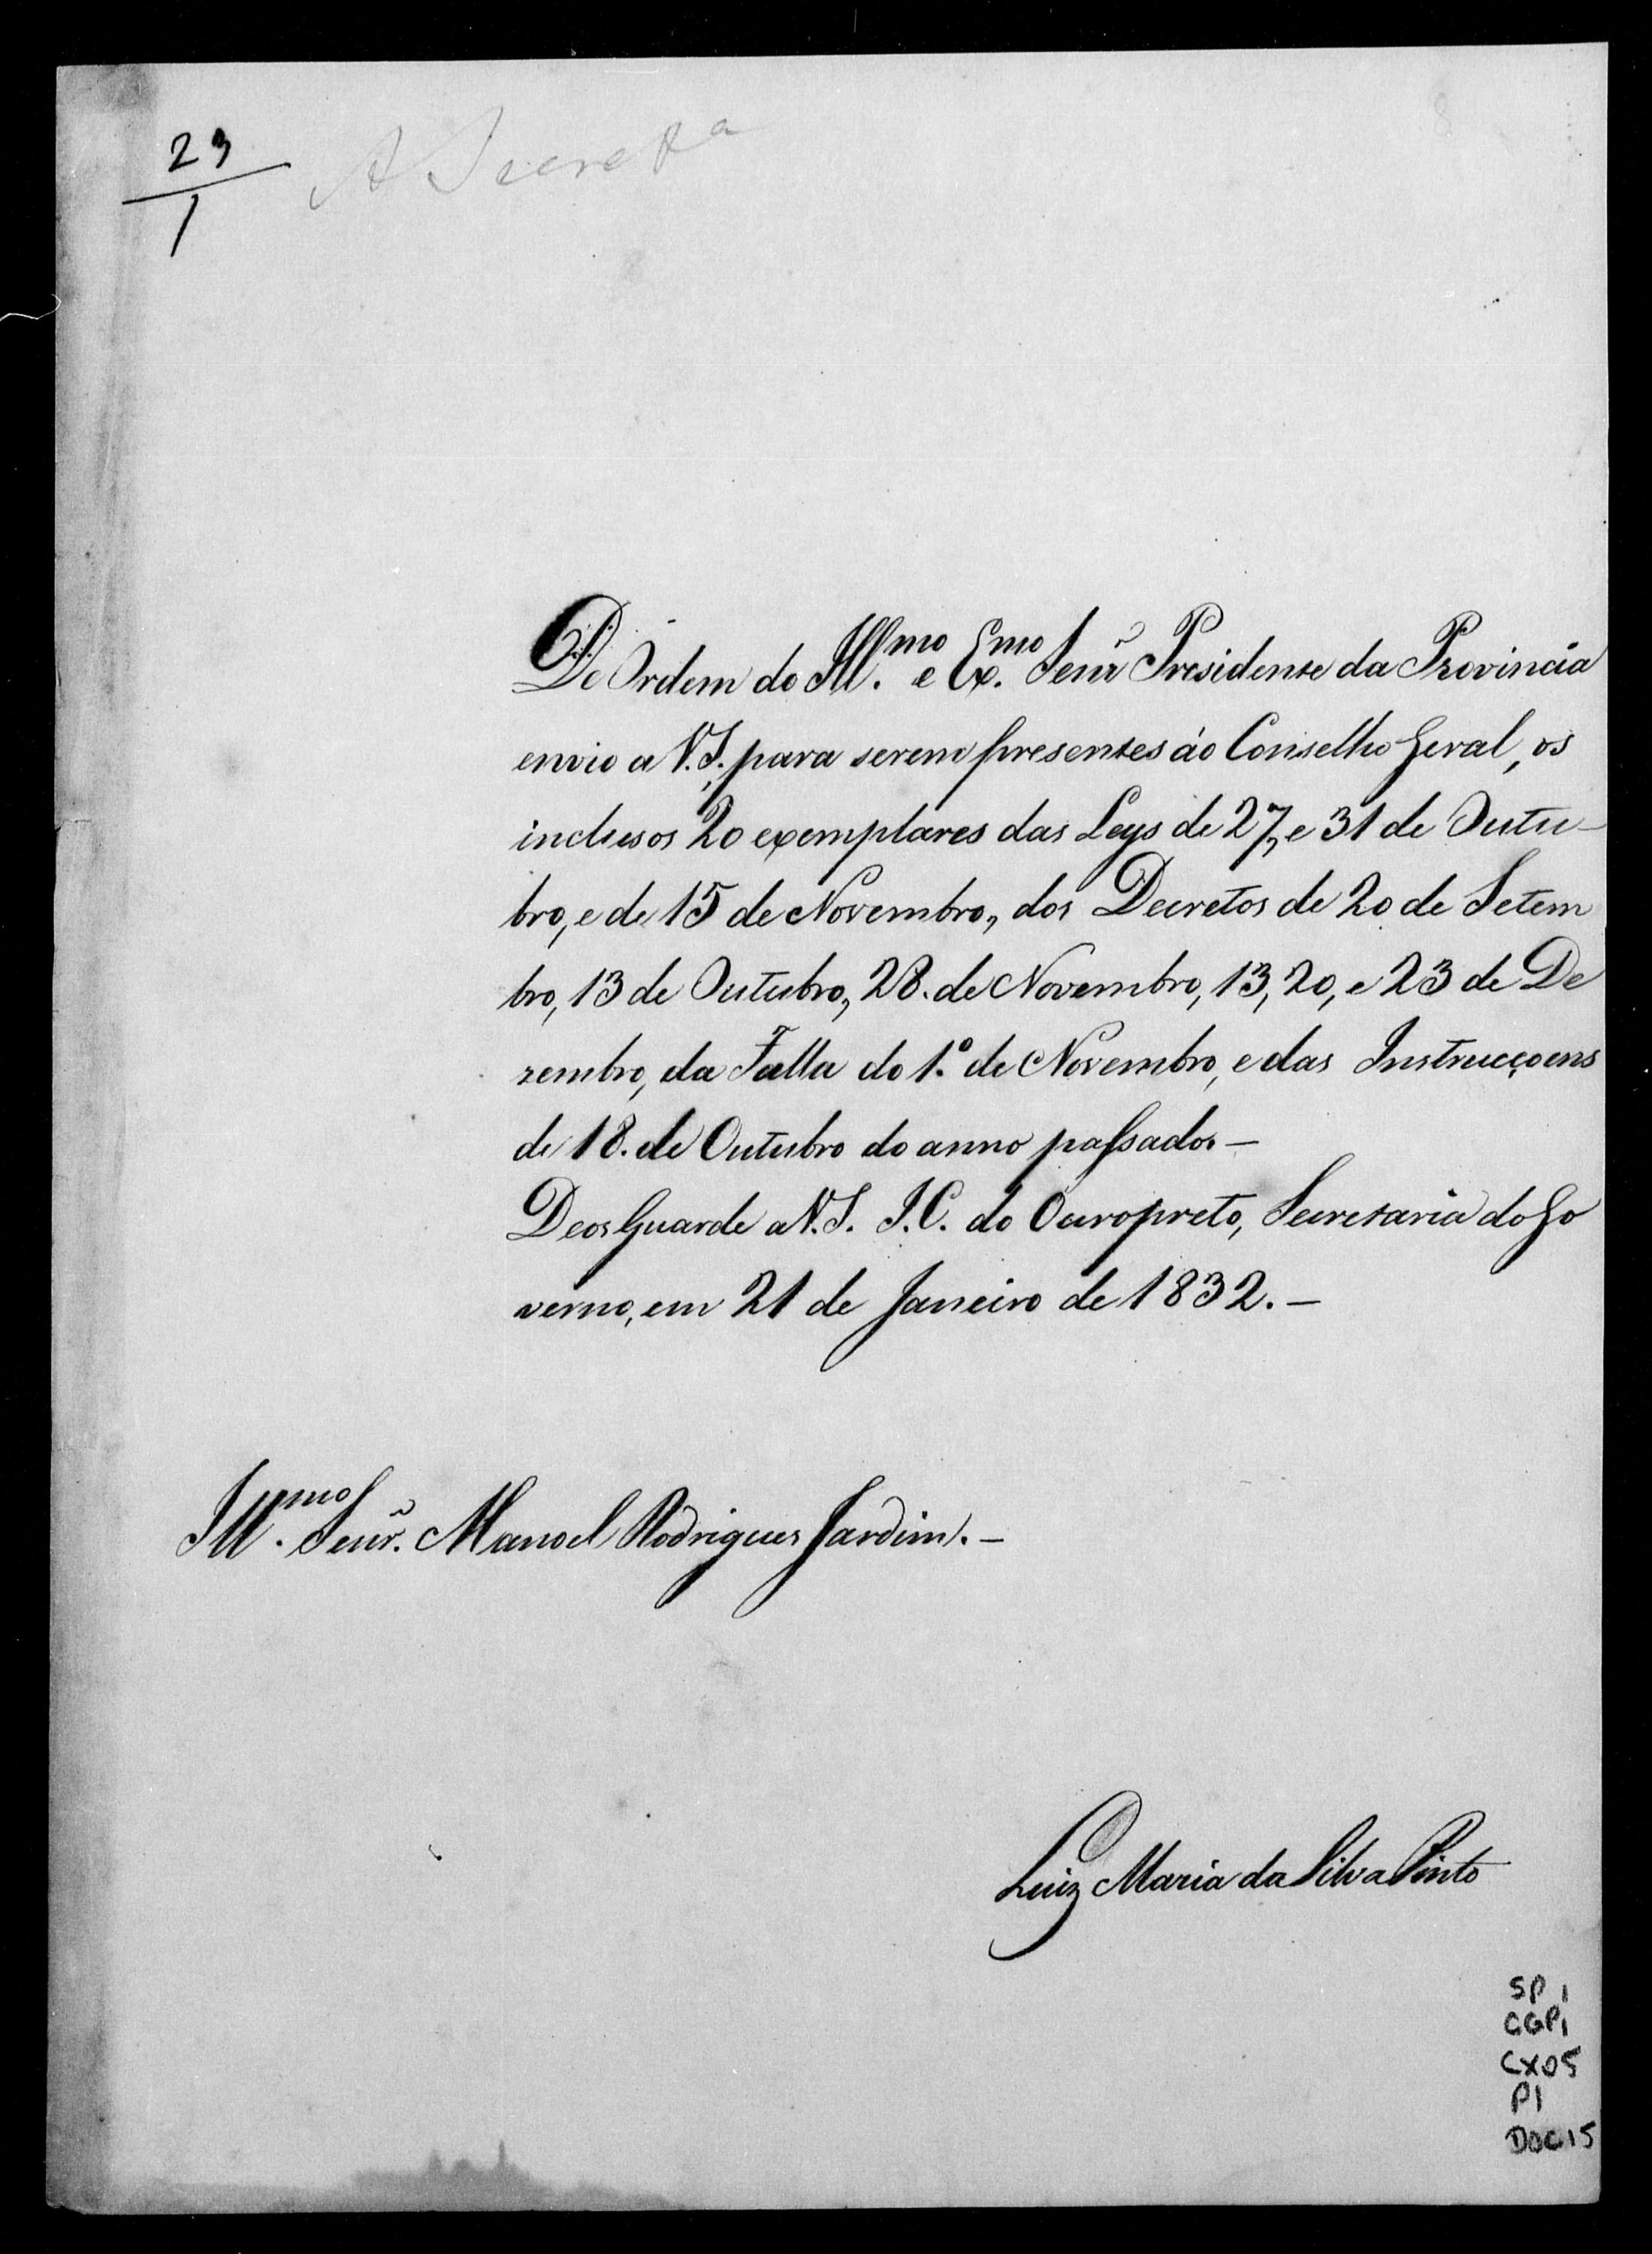 23
1
A Secretª
De Ordem do Ill.mo e Ex.mo Senr̃ Presidente da Provincia
envio a V.S. para serem presentes áo Conselho Geral, os
inclusos 20 exemplares das Leys de 27, e 31 de Outu-
bro, e de 15 de Novembro, dos Decretos de 20 de Setem
bro, 13 de Outubro, 28. de Novembro, 13, 20, e 23 de De
zembro, da Falla do 1.º de Novembro, e das Instrucçoens
de 18. de Outubro do anno passado. —
Deos Guarde a V.S. I.C. do Ouropreto, Secretaria do Go
verno, em 21 de Janeiro de 1832. —
Ill.mo Senr̃. Manoel Rodrigues Jardim. —
Luiz Maria da Silva Pinto
SP1
CGP1
CX05
P1
DOC15